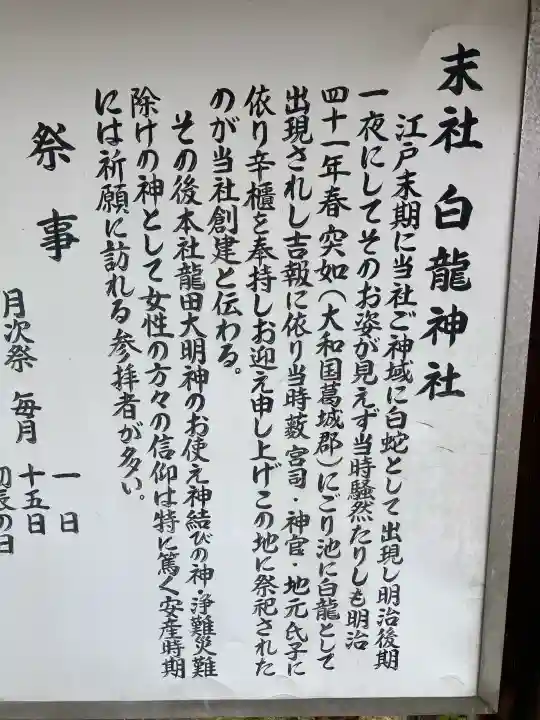 末社 白龍神社
江戸末期に当社ご神域に白蛇として出現し明治後期
一夜にしてそのお姿が見えず当時騒然たりしも明治
四十一年春突如(大和国葛城郡)にごり池に白龍として
出現されし吉報に依り当時藪宮司・神官・地元氏子に
依り辛櫃を奉持しお迎え申し上げこの地に祭祀された
のが当社創建と伝わる。
その後本社龍田大明神のお使え神結びの神・浄難災難
除けの神として女性の方々の信仰は特に篤く安産時期
には祈願に訪れる参拝者が多い。
祭事
月次祭 毎月 一日
十五日
初辰の日